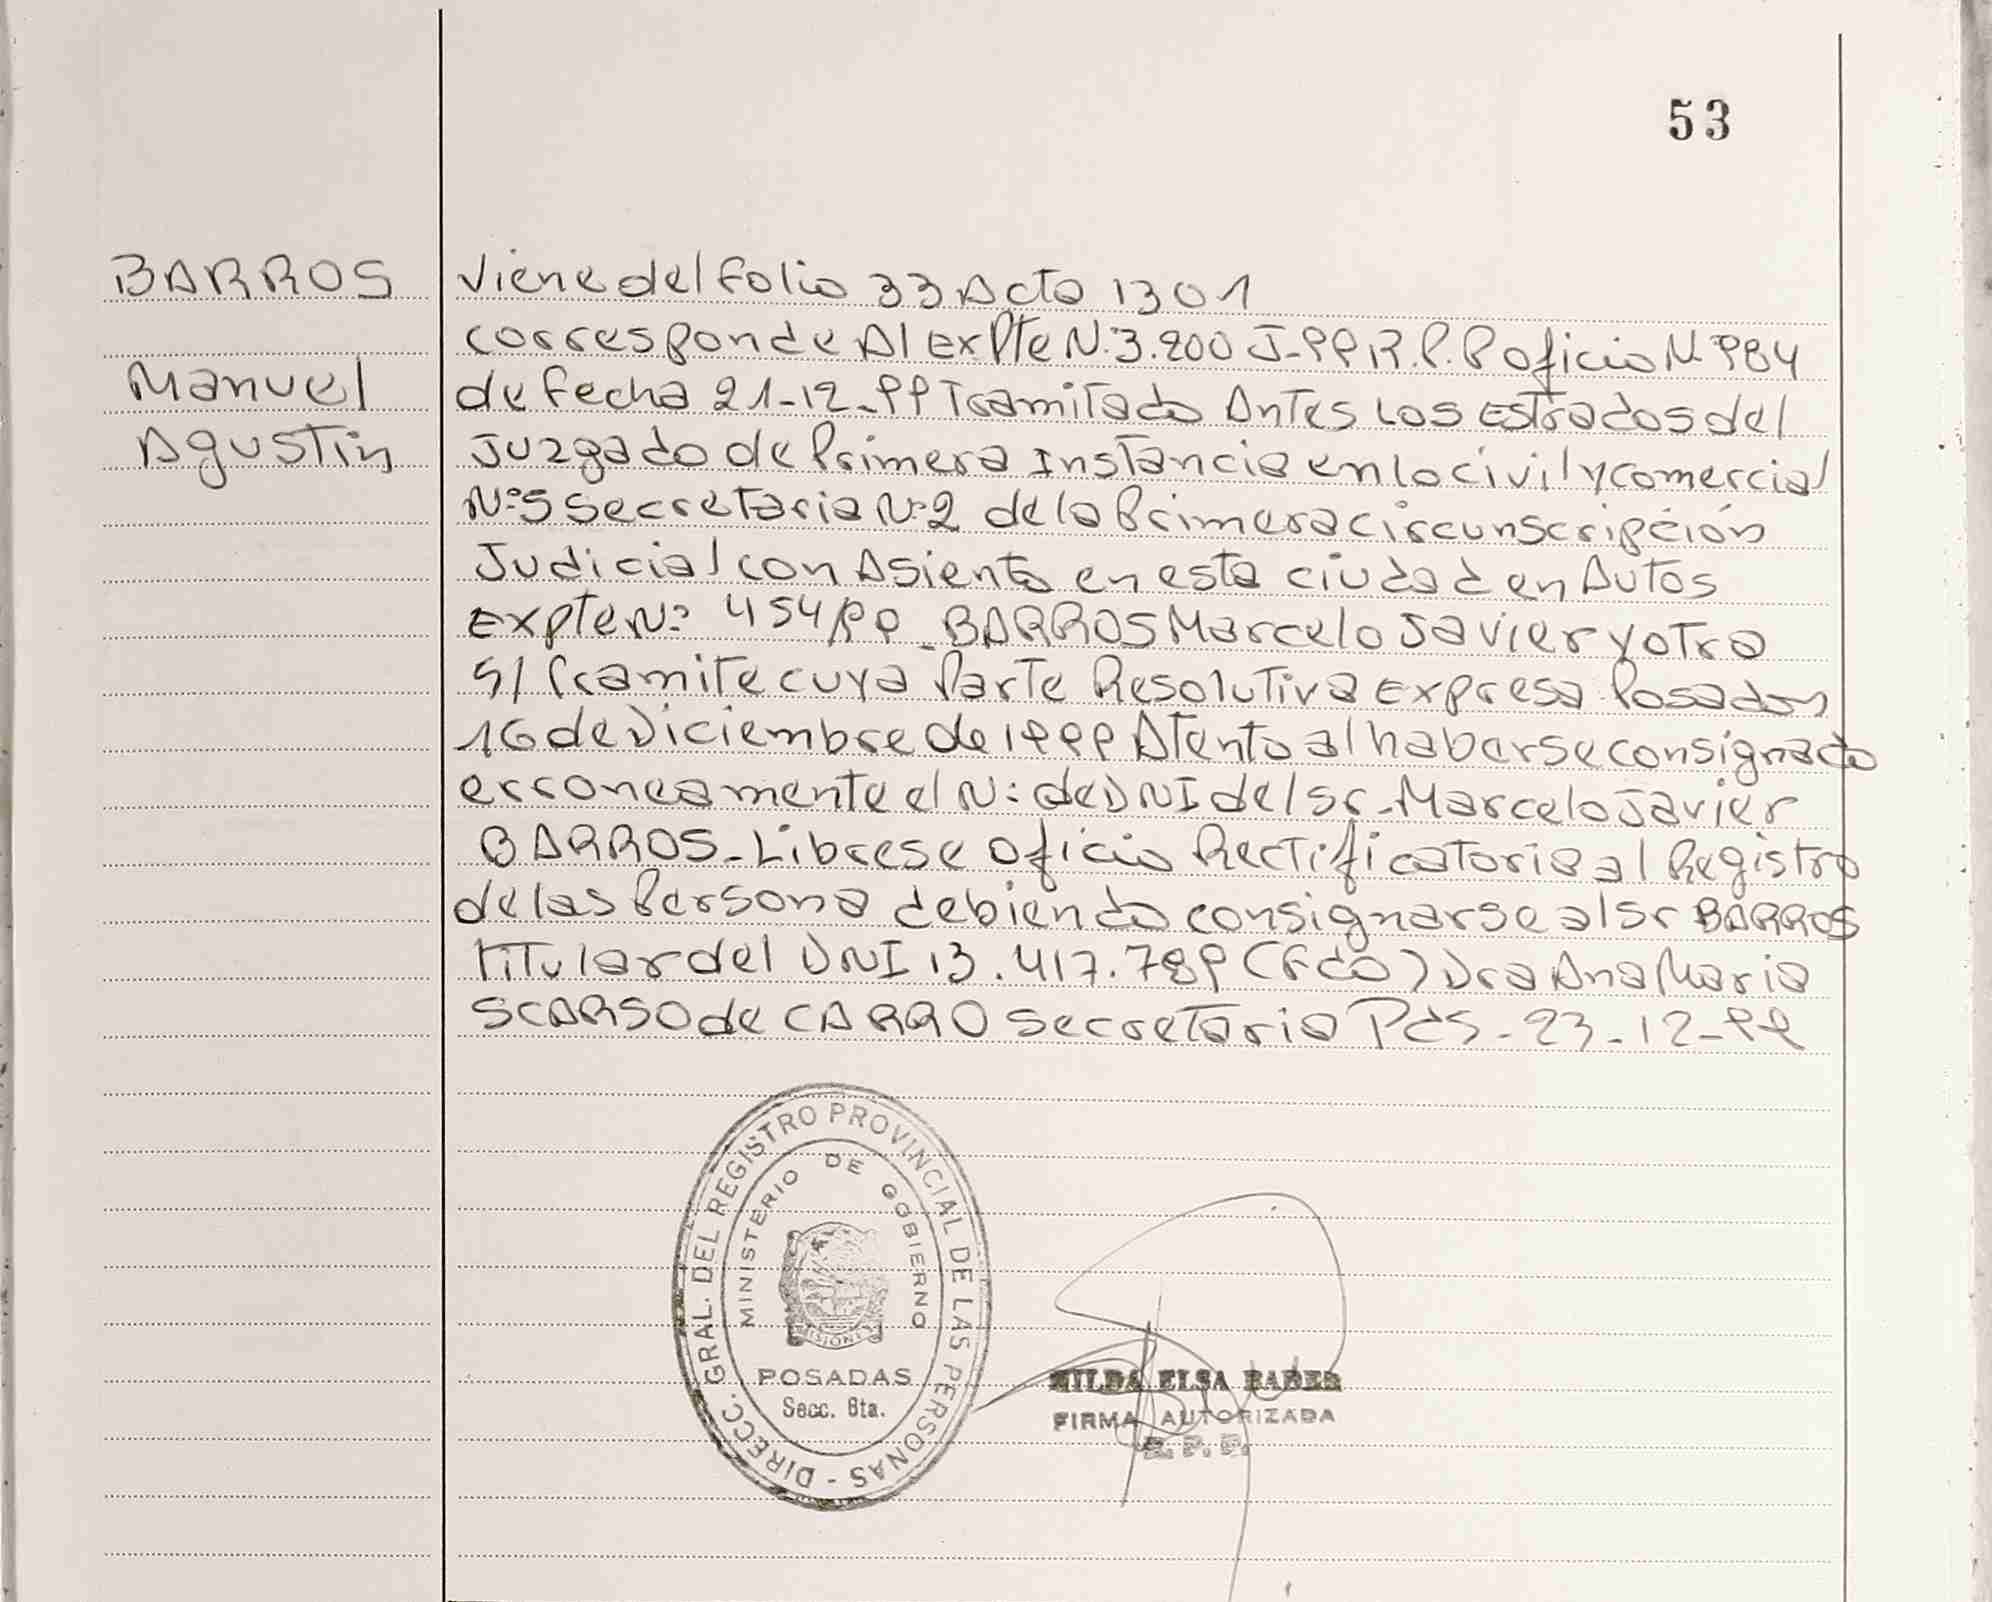 53
BARROS
Manuel
Agustin
Viene del folio 33 Acta 1301
corresponde Al expte N: 3.200 J-99 R.P.P oficio N: 984
de fecha 21-12-99 Tramitado Antes Los Estrados del
Juzgado de Primera Instancia en lo civil y comercial
N:5 secretaria N:2 de la Primera circunscripción
Judicial con Asiento en esta ciudad en Autos
Expte N: 454/99_BARROS Marcelo Javier y otra
S/ tramite cuya Parte Resolutiva Expresa Posadas
16 de Diciembre de 1999 Atento al haberse consignado
erroneamente el N: de DNI del sr. Marcelo Javier
BARROS-Librese oficio Rectificatorio al Registro
de las Persona debiendo consignarse al sr BARROS
titular del DNI 13.417.789 (fdo) Dra Ana Maria
SCARSO de CARRO secretaria Pds-23-12-99
DIRECC. GRAL. DEL REGISTRO PROVINCIAL DE LAS PERSONAS -
MINISTERIO DE GOBIERNO
MISIONES
POSADAS
Secc. 6ta.
HILDA ELSA BADER
FIRMA AUTORIZADA
R. P. P.